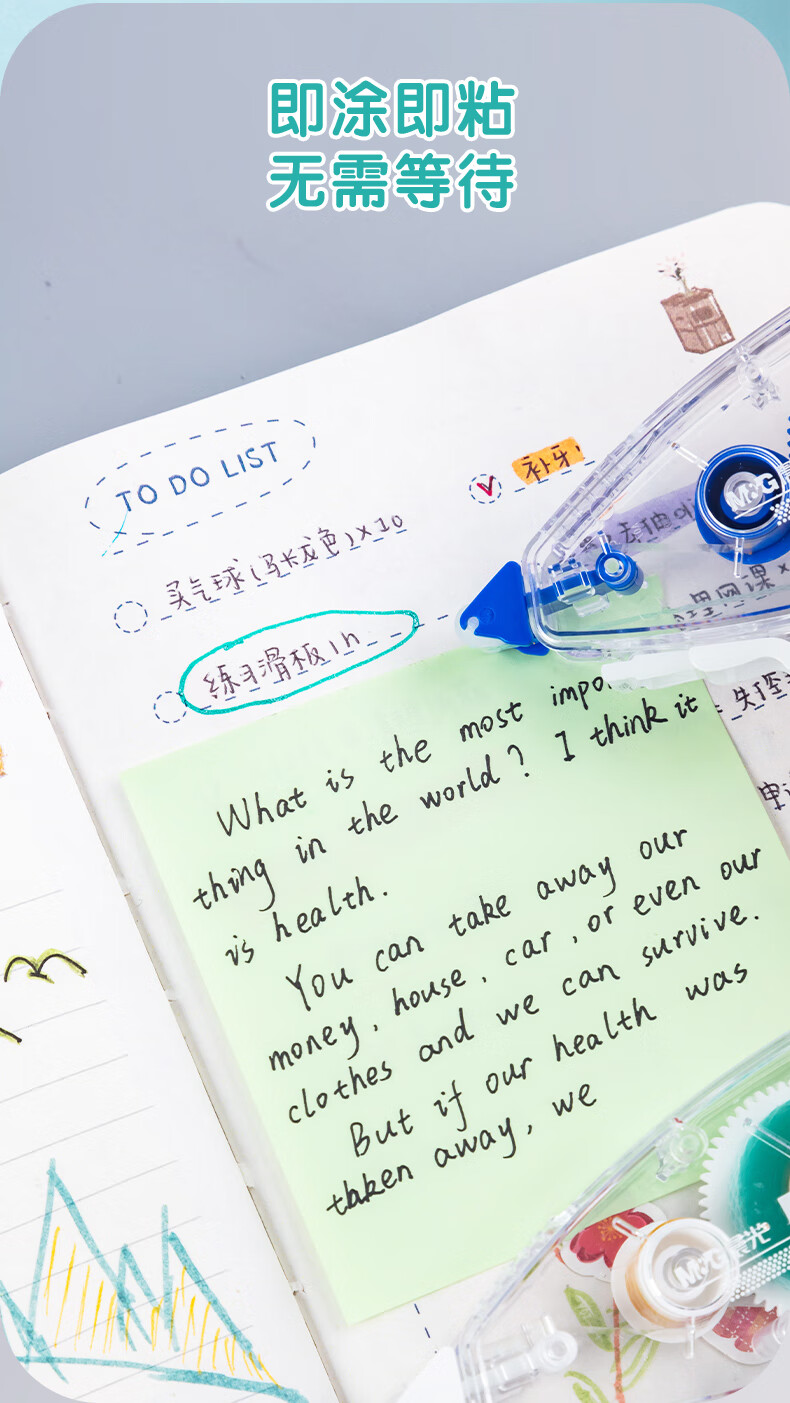 即涂即粘
无需等待
TO DO LIST
补牙!
买气球(马卡龙色)×10
练习滑板1h
What is the most impo
thing in the world? I think it
is health.
You can take away our
money, house, car, or even our
clothes and we can survive.
But if our health was
taken away, we
M&G
M&G晨光